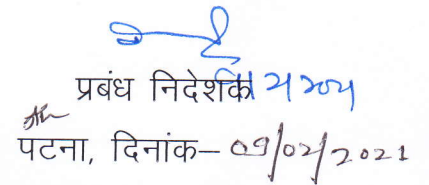 प्रबंध निदेशक
पटना, दिनांक– 09/02/2021